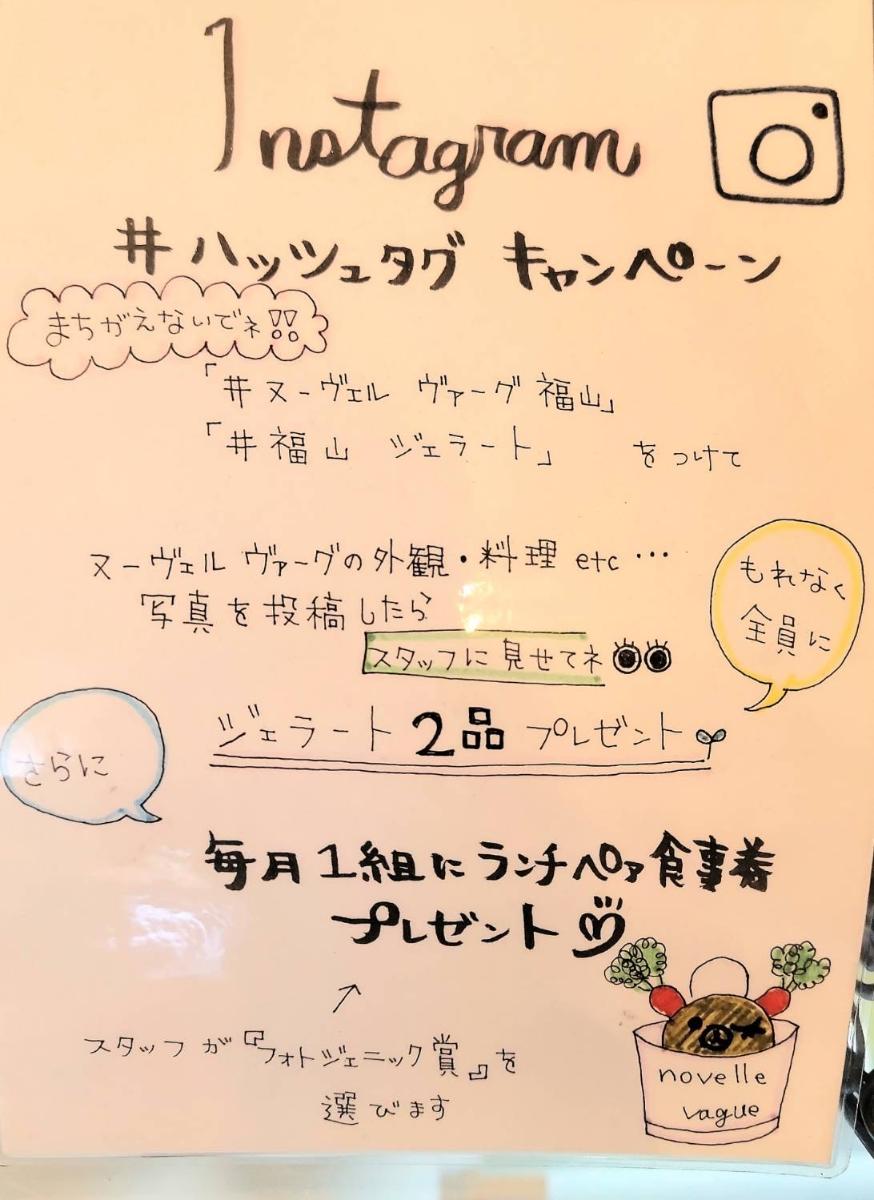 Instagram
#ハッシュタグ キャンペーン
まちがえないでネ!!
「#ヌーヴェル ヴァーグ 福山」
「#福山 ジェラート」 をつけて
ヌーヴェル ヴァーグの外観・料理 etc…
写真を投稿したら
もれなく
全員に
スタッフに見せてネ
ジェラート 2品 プレゼント
さらに
毎月1組にランチペア食事券
プレゼント
スタッフが『フォトジェニック賞』を
選びます
novelle
vague